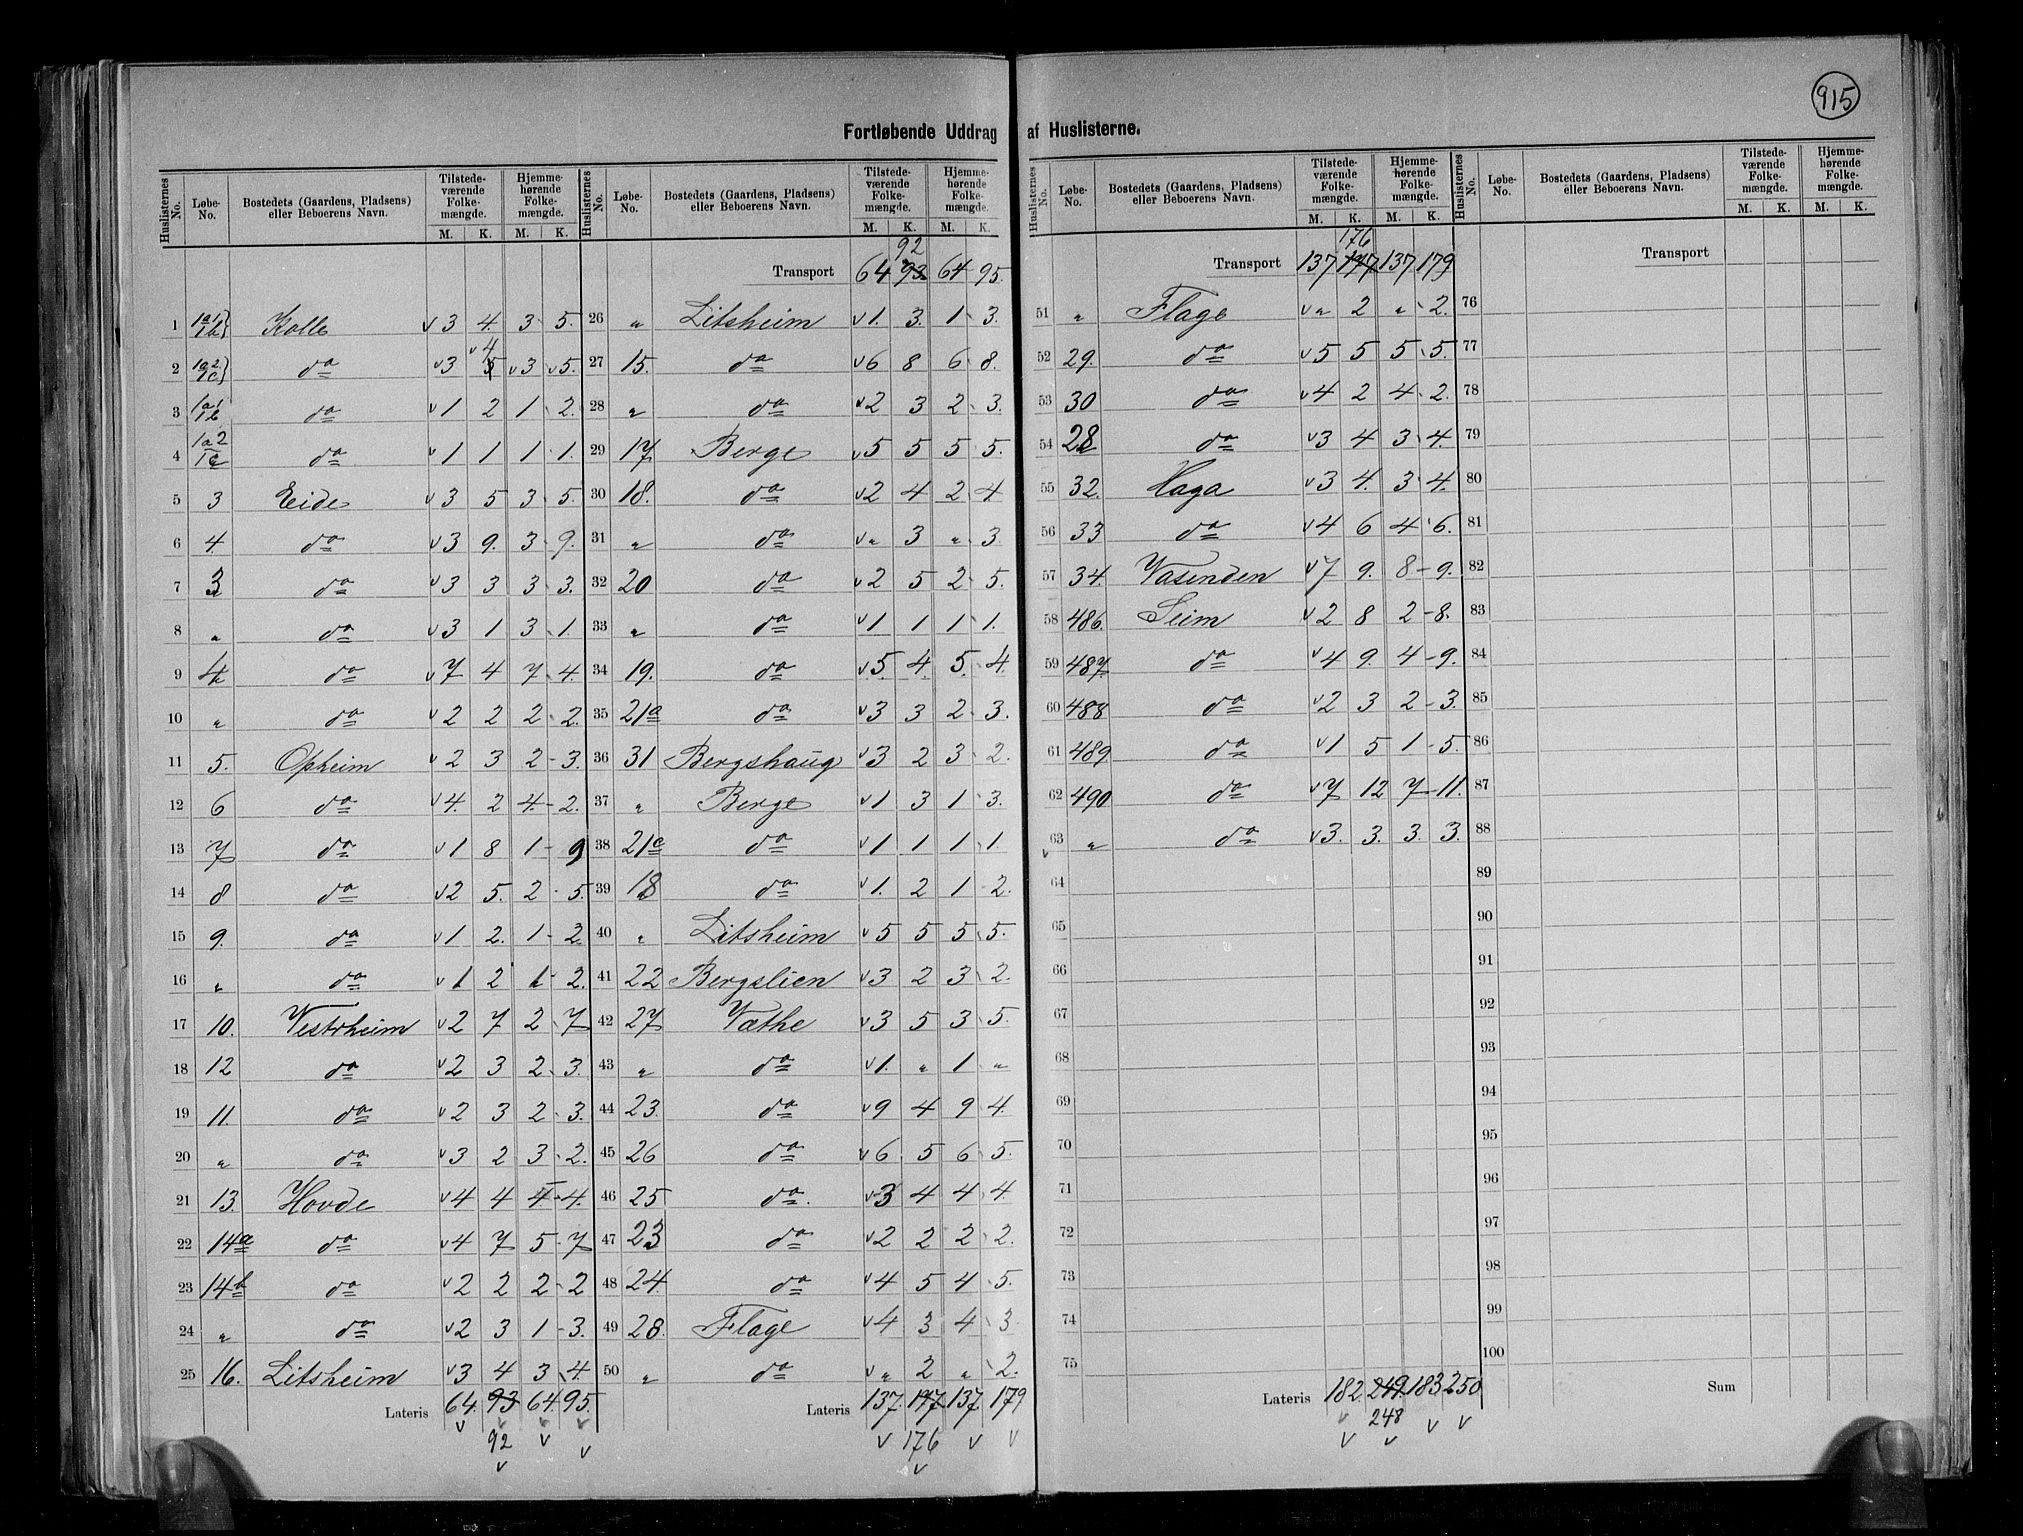 915
Fortløbende Uddrag af Huslisterne.
Huslisternes No. Løbe-No. Bostedets (Gaardens, Pladsens) eller Beboerens Navn. Tilstedeværende Folkemængde. M. K. Hjemmehørende Folkemængde. M. K.
1 1a1 1b Kolle 3 4 3 5
2 1a2 1c do 3 4 5 3 5
3 1a1 1b do 1 2 1 2
4 1a2 1c do 1 1 1 1
5 3 Eide 3 5 3 5
6 4 do 3 9 3 9
7 3 do 3 3 3 3
8 " do 3 1 3 1
9 4 do 7 4 7 4
10 " do 2 2 2 2
11 5 Opheim 2 3 2 3
12 6 do 4 2 4 2
13 7 do 1 8 1 9
14 8 do 2 5 2 5
15 9 do 1 2 1 2
16 " do 1 2 1 2
17 10 Vestrheim 2 7 2 7
18 12 do 2 3 2 3
19 11 do 2 3 2 3
20 " do 3 2 3 2
21 13 Hovde 4 4 4 4
22 14a do 4 7 5 7
23 14b do 2 2 2 2
24 " do 2 3 1 3
25 16 Litsheim 3 4 3 4
Lateris 64 93 64 95
92
Huslisternes No. Løbe-No. Bostedets (Gaardens, Pladsens) eller Beboerens Navn. Tilstedeværende Folkemængde. M. K. Hjemmehørende Folkemængde. M. K.
92
Transport 64 93 64 95
26 " Litsheim 1 3 1 3
27 15 do 6 8 6 8
28 " do 2 3 2 3
29 17 Berge 5 5 5 5
30 18 do 2 4 2 4
31 " do " 3 " 3
32 20 do 2 5 2 5
33 " do 1 1 1 1
34 19 do 5 4 5 4
35 21a do 3 3 2 3
36 31 Bergshaug 3 2 3 2
37 " Berge 1 3 1 3
38 21c do 1 1 1 1
39 18 do 1 2 1 2
40 " Litsheim 5 5 5 5
41 22 Bergslien 3 2 3 2
42 27 Væthe 3 5 3 5
43 " do 1 " 1 "
44 23 do 9 4 9 4
45 26 do 6 5 6 5
46 25 do 3 4 4 4
47 23 do 2 2 2 2
48 24 do 4 5 4 5
49 28 Flage 4 3 4 3
50 " do " 2 " 2
Lateris 137 177 137 179
176
Huslisternes No. Løbe-No. Bostedets (Gaardens, Pladsens) eller Beboerens Navn. Tilstedeværende Folkemængde. M. K. Hjemmehørende Folkemængde. M. K.
176
Transport 137 177 137 179
51 " Flage " 2 " 2
52 29 do 5 5 5 5
53 30 do 4 2 4 2
54 28 do 3 4 3 4
55 32 Haga 3 4 3 4
56 33 do 4 6 4 6
57 34 Vasenden 7 9 8 9
58 486 Seim 2 8 2 8
59 487 do 4 9 4 9
60 488 do 2 3 2 3
61 489 do 1 5 1 5
62 490 do 7 12 7 11
63 " do 3 3 3 3
64
65
66
67
68
69
70
71
72
73
74
75
Lateris 182 249 183 250
248
Huslisternes No. Løbe-No. Bostedets (Gaardens, Pladsens) eller Beboerens Navn. Tilstedeværende Folkemængde. M. K. Hjemmehørende Folkemængde. M. K.
Transport
76
77
78
79
80
81
82
83
84
85
86
87
88
89
90
91
92
93
94
95
96
97
98
99
100
Sum